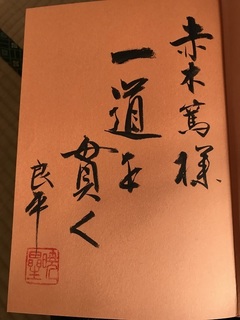 赤木篤様
一道を
貫く
良平